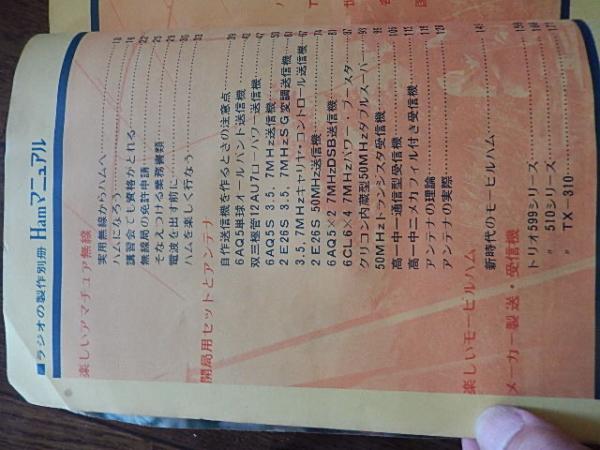 ■ラジオの製作別冊 Hamマニュアル
楽しいアマチュア無線
実用無線からハムへ
ハムになろう
講習会でも資格がとれる
無線局の免許申請
そなえつける業務書類
電波を出す前に
ハムを楽しく行なう
開局用セットとアンテナ
自作送信機を作るときの注意点
6AQ5単球オールバンド送信機
双三極管12AU7ローパワー送信機
6AQ5S 3.5, 7MHz送信機
2E26S 3.5, 7MHzSG変調送信機
3.5, 7MHzキャリヤ・コントロール送信機
2E26S 50MHz送信機
6AQ5×2 7MHzDSB送信機
6CL6×4 7MHzパワー・ブースタ
クリコン内蔵型50MHzダブルスーパー
50MHzトランジスタ受信機
高一中一通信型受信機
高一中二メカフィル付き受信機
アンテナの理論
アンテナの実際
楽しいモービルハム
新時代のモービルハム
メーカー製送・受信機
トリオ599シリーズ
〃 510シリーズ
〃 TX-310